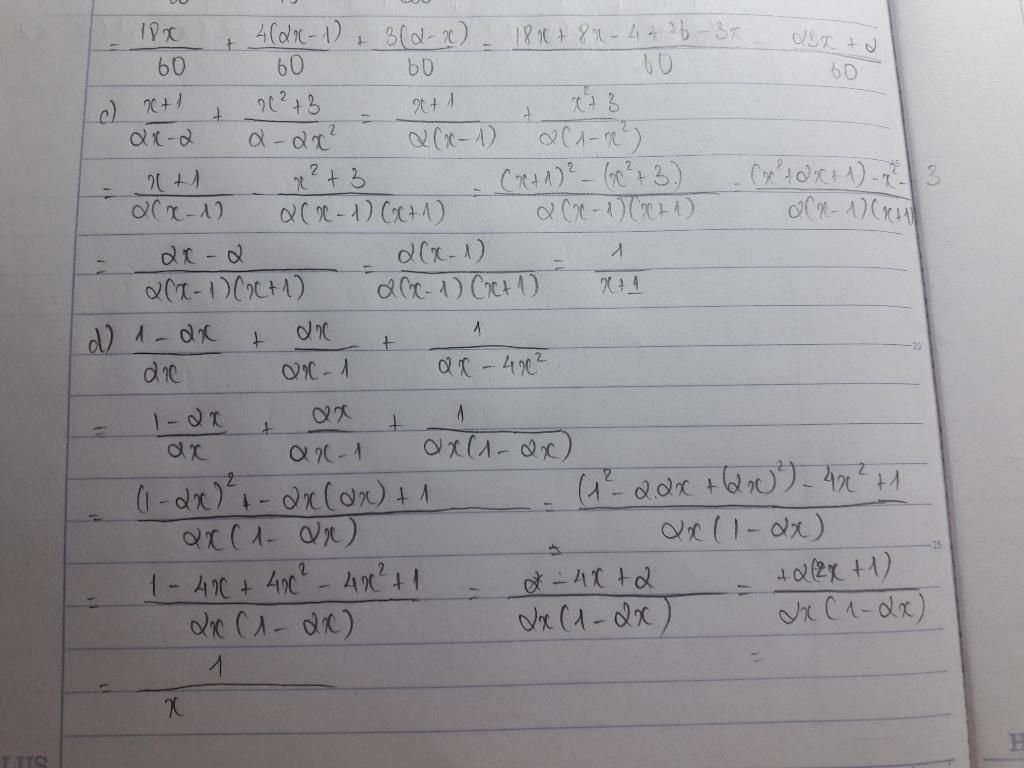 = 18x/60 + 4(2x-1)/60 + 3(2-x)/60 = (18x + 8x - 4 + 6 - 3x)/60 = (23x + 2)/60
c) (x+1)/(2x-2) + (x²+3)/(2-2x²) = (x+1)/(2(x-1)) + (x²+3)/(2(1-x²))
= (x+1)/(2(x-1)) - (x²+3)/(2(x-1)(x+1)) = ((x+1)² - (x²+3))/(2(x-1)(x+1)) = ((x²+2x+1) - x² - 3)/(2(x-1)(x+1))
= (2x-2)/(2(x-1)(x+1)) = (2(x-1))/(2(x-1)(x+1)) = 1/(x+1)
d) (1-2x)/(2x) + (2x)/(2x-1) + 1/(2x-4x²)
= (1-2x)/(2x) + (2x)/(2x-1) + 1/(2x(1-2x))
= ((1-2x)² + - 2x(2x) + 1)/(2x(1-2x)) = ((1² - 2.2x + (2x)²) - 4x² + 1)/(2x(1-2x))
= (1 - 4x + 4x² - 4x² + 1)/(2x(1-2x)) = (-4x + 2)/(2x(1-2x)) = (+2(2x+1))/(2x(1-2x))
= 1/x =
20
25